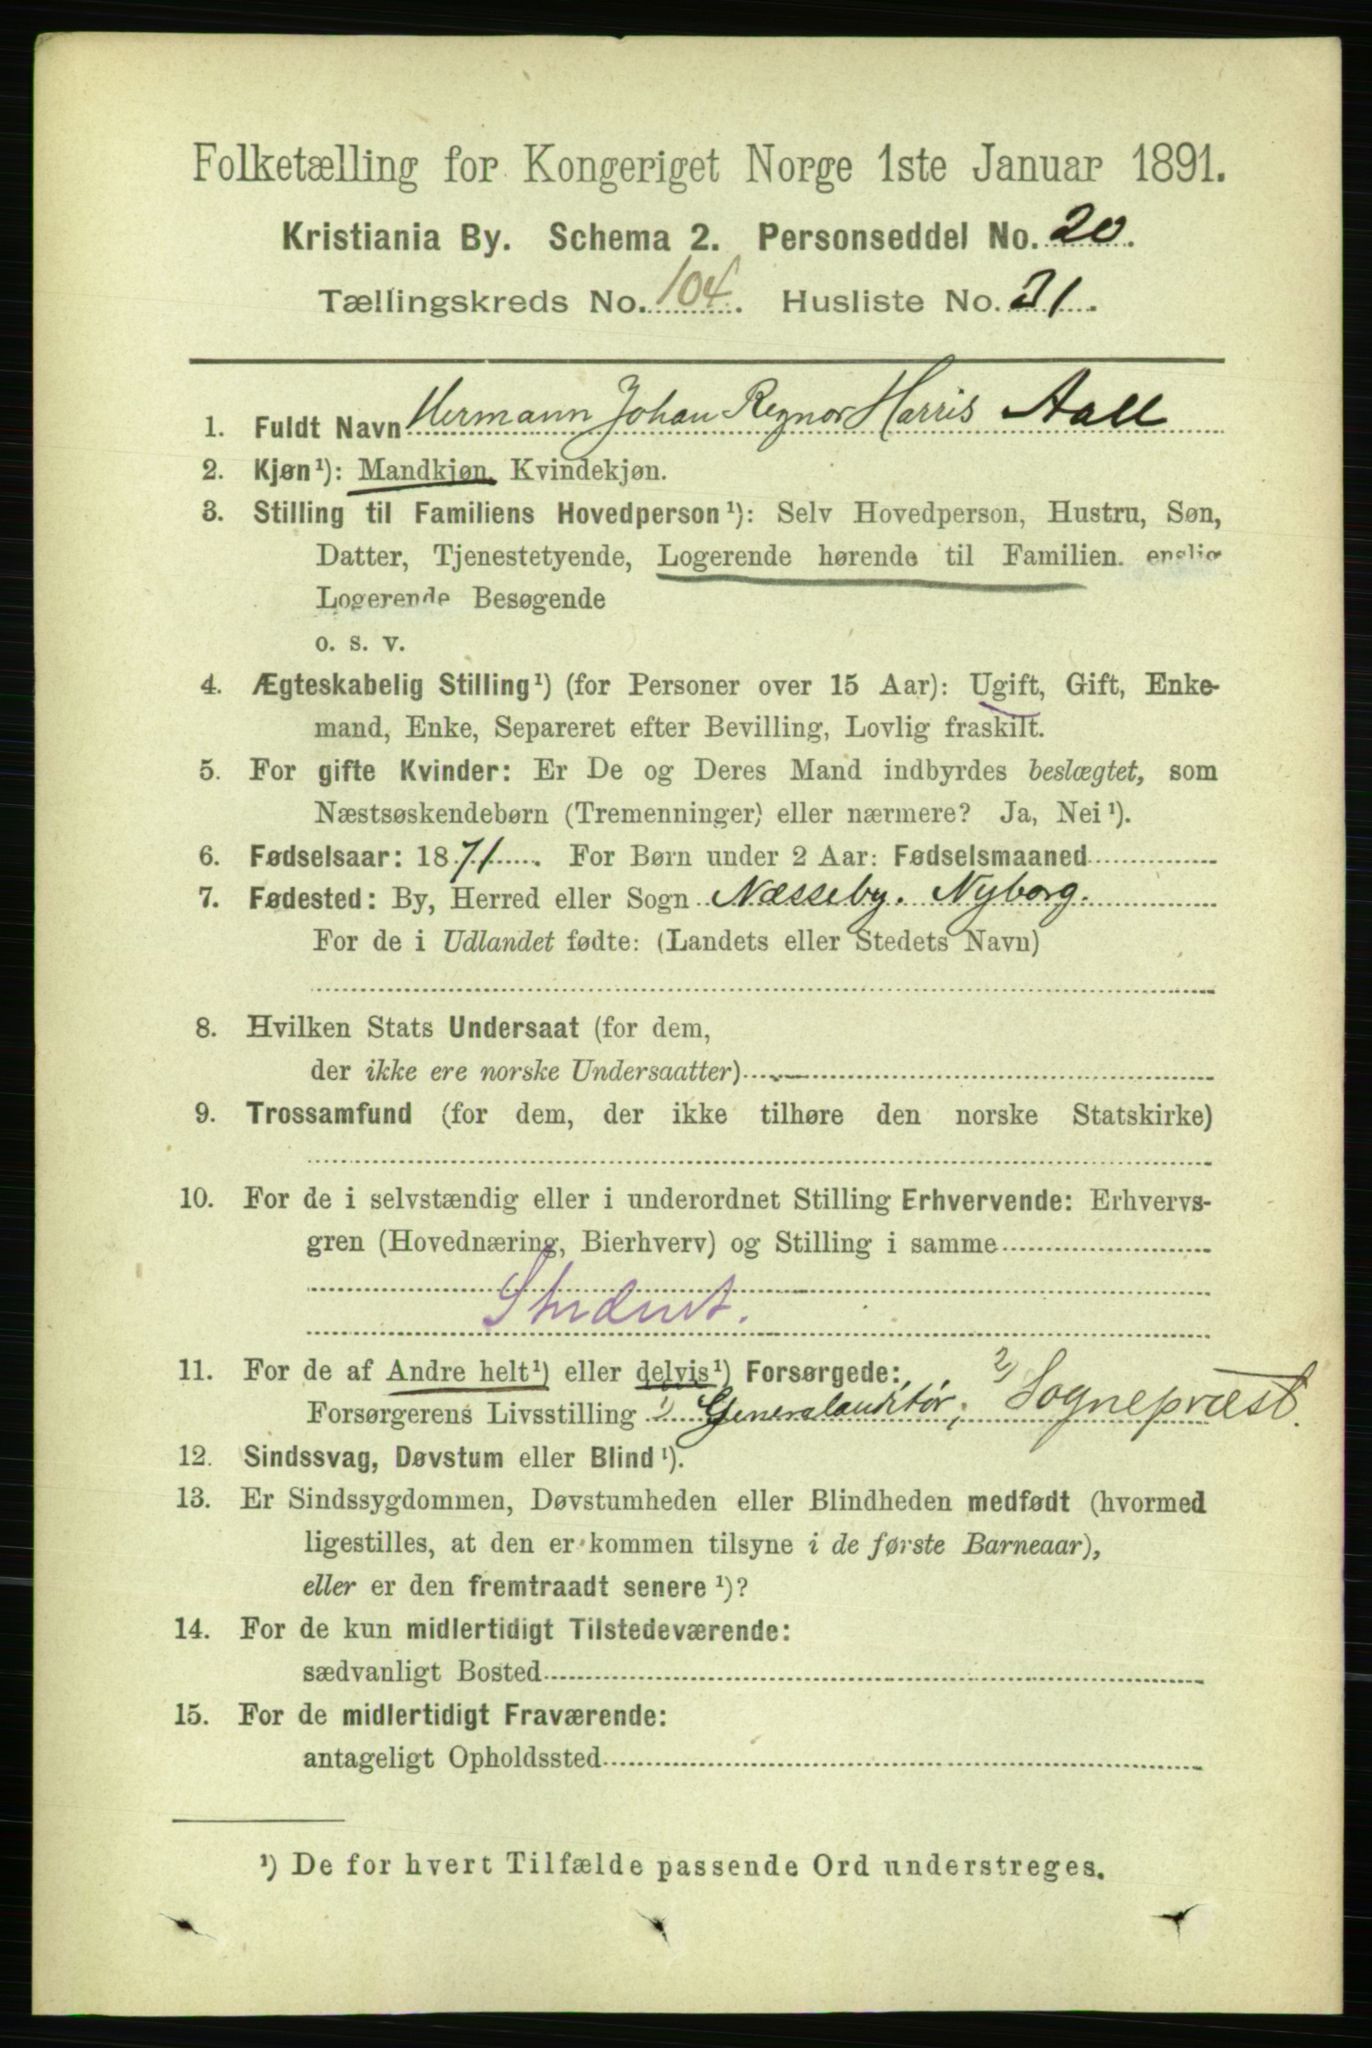 Folketælling for Kongeriget Norge 1ste Januar 1891.
Kristiania By. Schema 2. Personseddel No. 20.
Tællingskreds No. 104. Husliste No. 21.
1. Fuldt Navn Hermann Johan Regnor Harris Aall
2. Kjøn¹): Mandkjøn, Kvindekjøn.
3. Stilling til Familiens Hovedperson¹): Selv Hovedperson, Hustru, Søn,
Datter, Tjenestetyende, Logerende hørende til Familien, enslig
Logerende Besøgende
o. s. v.
4. Ægteskabelig Stilling¹) (for Personer over 15 Aar): Ugift, Gift, Enke-
mand, Enke, Separeret efter Bevilling, Lovlig fraskilt.
5. For gifte Kvinder: Er De og Deres Mand indbyrdes beslægtet, som
Næstsøskendebørn (Tremenninger) eller nærmere? Ja, Nei¹).
6. Fødselsaar: 1871. For Børn under 2 Aar: Fødselsmaaned
7. Fødested: By, Herred eller Sogn Næsseby. Nyborg.
For de i Udlandet fødte: (Landets eller Stedets Navn)
8. Hvilken Stats Undersaat (for dem,
der ikke ere norske Undersaatter)
9. Trossamfund (for dem, der ikke tilhøre den norske Statskirke)
10. For de i selvstændig eller i underordnet Stilling Erhvervende: Erhvervs-
gren (Hovednæring, Bierhverv) og Stilling i samme
Student.
11. For de af Andre helt¹) eller delvis¹) Forsørgede:
Forsørgerens Livsstilling 1) Generalauditør; 2) Sognepræst.
12. Sindssvag, Døvstum eller Blind¹).
13. Er Sindssygdommen, Døvstumheden eller Blindheden medfødt (hvormed
ligestilles, at den er kommen tilsyne i de første Barneaar),
eller er den fremtraadt senere¹)?
14. For de kun midlertidigt Tilstedeværende:
sædvanligt Bosted
15. For de midlertidigt Fraværende:
antageligt Opholdssted
¹) De for hvert Tilfælde passende Ord understreges.